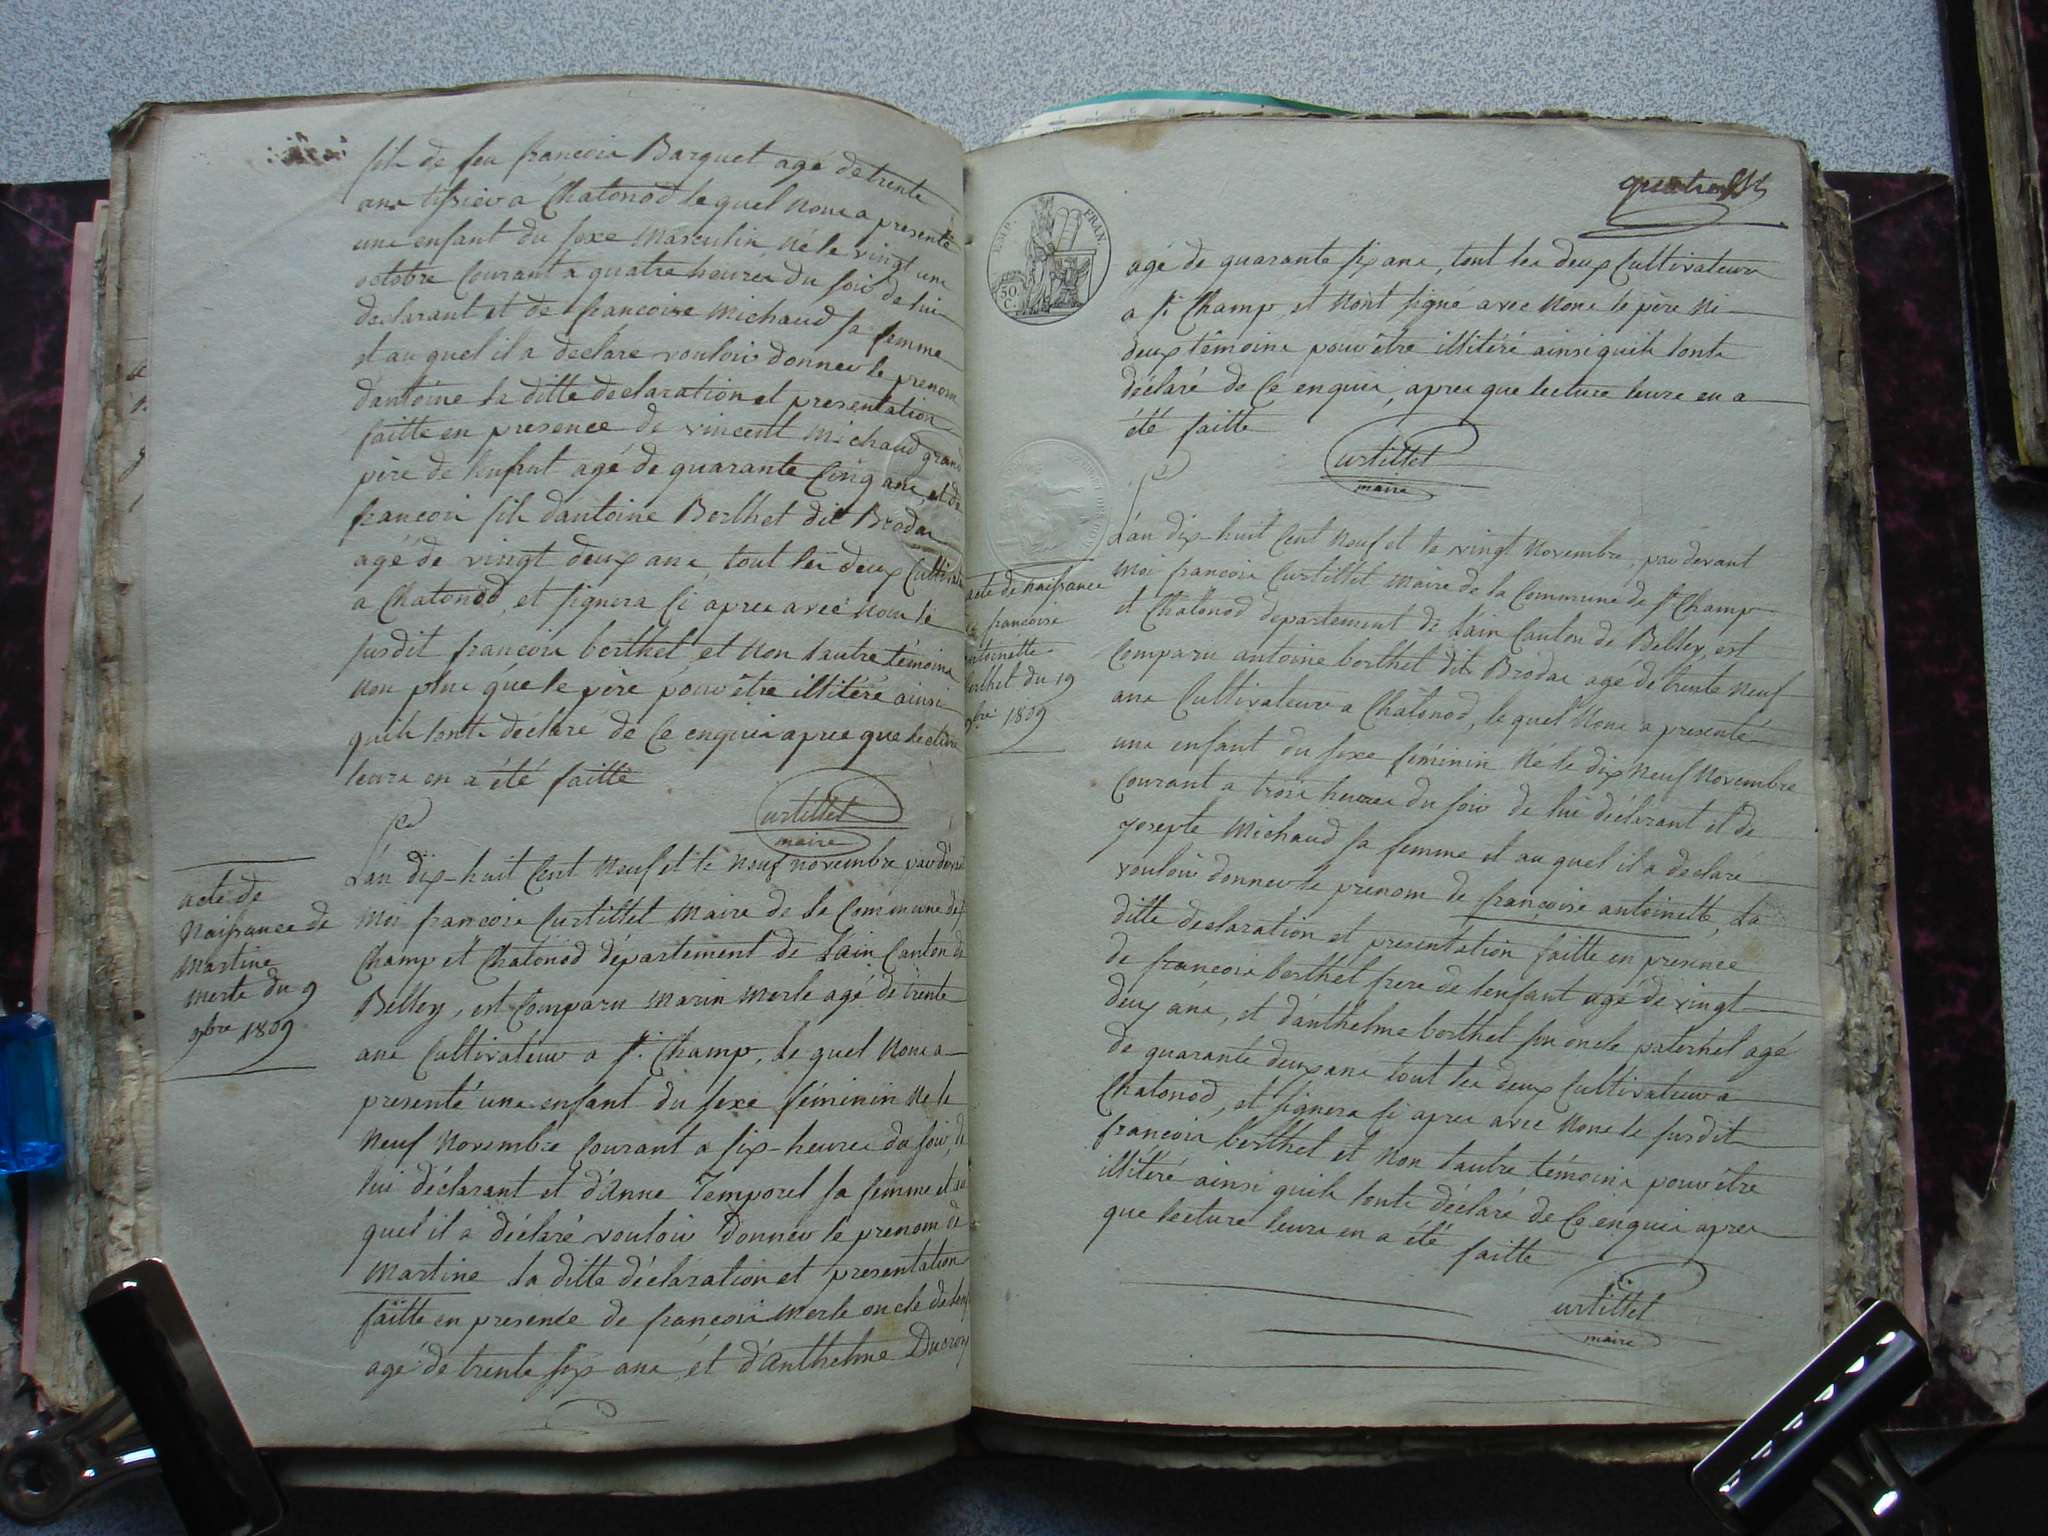 fils de feu françois Barquet agé de trente
ans à Chatonod le quel nous a presenté
une enfant du sexe Masculin né le vingt une
octobre Courant a quatre heures du soir de lui
declarant et de françoise Michaud sa femme
et au quel il a declaré vouloir donner le prenom
d'antoine la ditte declaration et presentation
faitte en presence de vincent Michaud grand
père de l'enfant agé de quarante Cinq ans, et de
françois fils d'antoine Berthet dit Brodas
agé de vingt deux ans, tout les deux Cultivate
a Chatonod, et signera Ci apres avec Nous le
susdit françois berthet et Non l'autre témoins
Non plus que le père pour être illitéré ainsi
quils lont déclaré de Ce enquis apres que lecture
leurs en a été faitte
Curtillet
maire
acte de
Naissance de
Martine
Merle du 9
9bre 1809
L'an dix-huit Cent Neuf et le Neuf novembre par devant
Moi françois Curtillet Maire de la Commune de St
Champ et Chatonod département de Lain Canton de
Belley, est Comparu Marin Merle agé de trente
ans Cultivateur a St Champ, le quel Nous a
presenté une enfant du sexe féminin Né le
Neuf Novembre Courant a six-heures du soir, de
lui déclarant et d'Anne Temporel sa femme et au
quel il a déclaré vouloir donner le prenom de
Martine la ditte déclaration et presentation
faitte en presence de françois Merle oncle de
agé de trente six ans, et d'Anthelme Ducroy
EMP. FRAN.
50
C.
agé de quarante six ans, tout les deux Cultivateurs
a St Champ, et Nont signé avec Nous le père Ni
deux témoins pour être illitéré ainsi quils lonts
déclaré de Ce enquis, apres que lecture leurs en a
été faitte
Curtillet
maire
acte de Naissance
françoise
antoinette
berthet du 19
9bre 1809
L'an dix-huit Cent Neuf et le vingt Novembre, par devant
Moi françois Curtillet Maire de la Commune de St Champ
et Chatonod departement de Lain Canton de Belley, est
Comparu antoine berthet dit Brodas agé de trente Neuf
ans Cultivateur a Chatonod, le quel Nous a presenté
une enfant du sexe féminin Né le dix Neuf Novembre
Courant a trois heures du soir de lui déclarant et de
josepte Michaud sa femme et au quel il a declaré
vouloir donner le prenom de françoise antoinette, La
ditte declaration et presentation faitte en presence
de françois berthet frere de l'enfant agé de vingt
deux ans, et d'anthelme berthet son oncle paternel agé
de quarante deux ans tout les deux Cultivateur a
Chatonod, et signera Ci apres avec Nous le susdit
françois berthet et Non l'autre témoins pour être
illitéré ainsi quils lonts déclaré de Ce enquis apres
que lecture leurs en a été faitte
Curtillet
maire